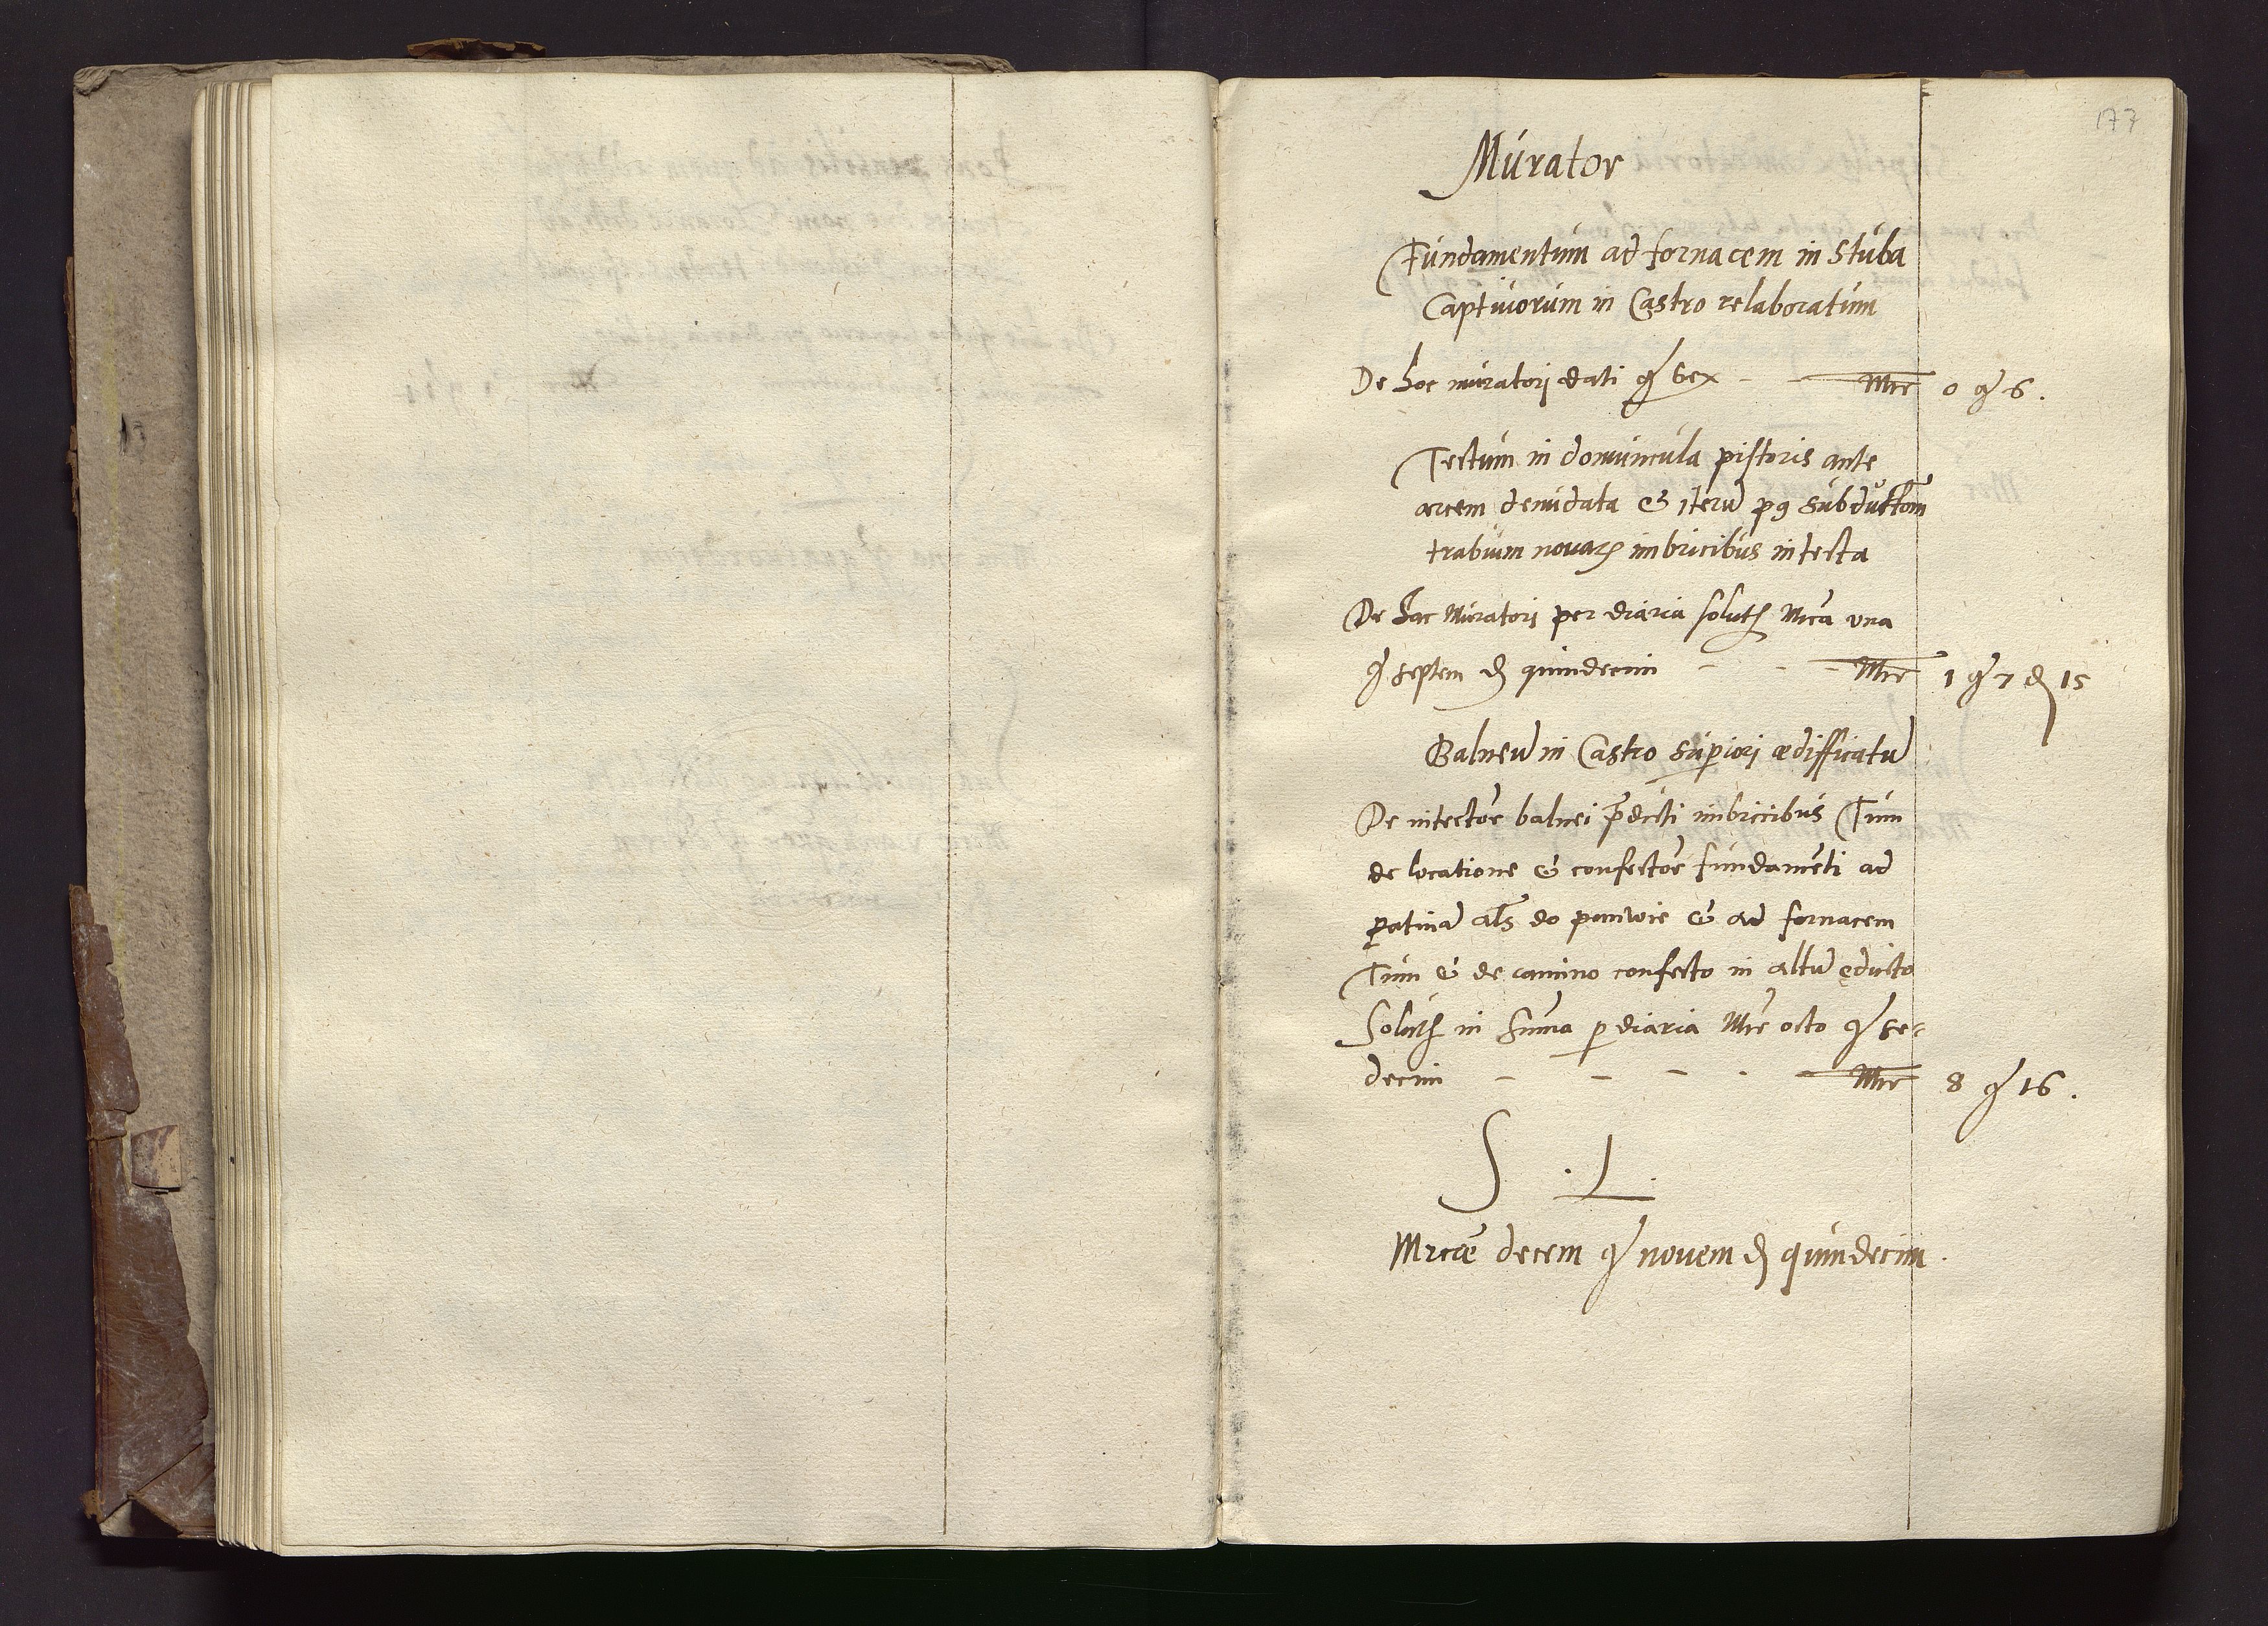 177
Murator
Fundamentum ad fornacem in Stuba
Captiuorum in Castro relaboratum
De hoc muratori dati g̃ sex - - Mrc̃ 0 g̃ 6.
Tectum in domuncula pistoris ante
arcem denudata & iterũ p9 subductom̃
trabium nouarꝝ imbricibus intecta
De hac Muratori per diaria solutꝭ Mrca vna
g̃ septem ₰ quindecim - - - Mrc̃ 1 g̃ 7 ₰ 15
Balneũ in Castro superiori ædifficatũ
De intectõe balnei p̃dicti imbricibus Tum
de locatione & confectõe fundamẽti ad
patinã al̃s do panwie & ad fornacem
Tum & de camino confecto in altũ educto
Solutꝭ in sum̃a p diaria Mrc̃ octo g̃ se-
decim - - - - Mrc̃ 8 g̃ 16.
S . L .
Mrcæ decem g̃ nouem ₰ quindecim.